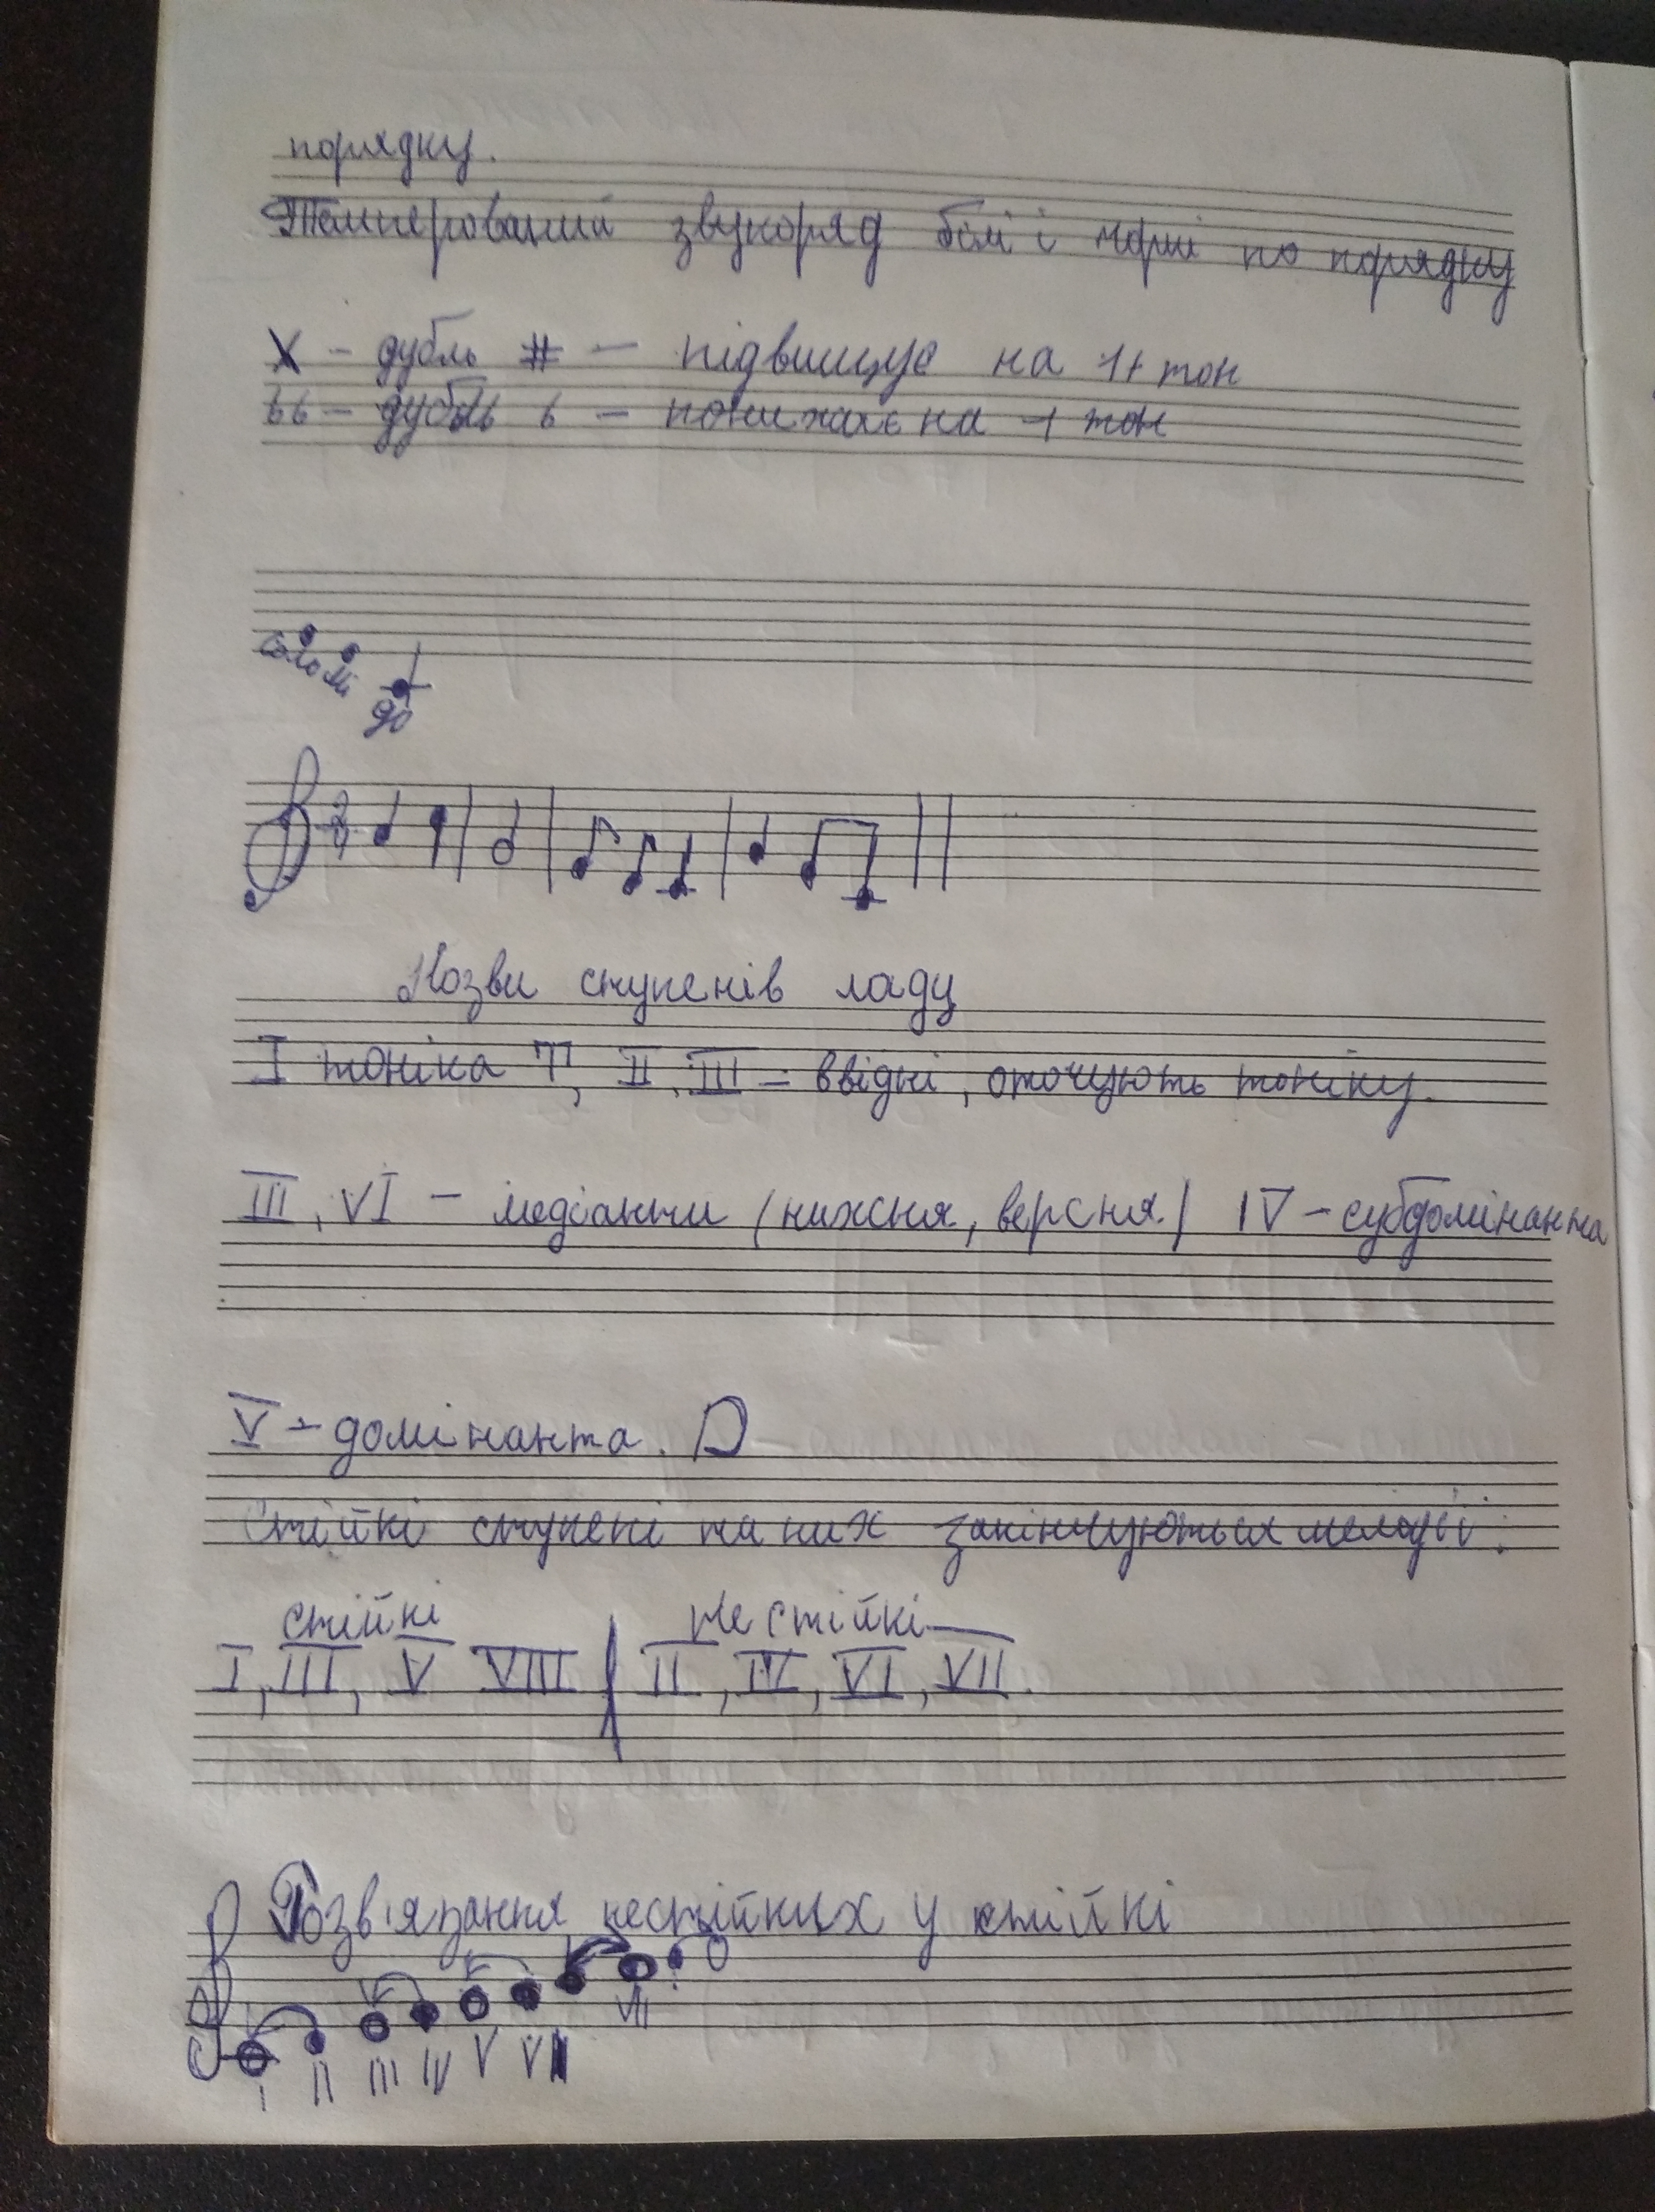 порядку.
Темперований звукоряд білі і чорні по порядку
X – дубль # – підвищує на 1 тон
bb – дубль b – понижає на 1 тон
соль мі
до
2
4
Назви ступенів ладу
I тоніка T, II, III – ввідні, оточують тоніку.
III, VI – медіанти (нижня, верхня) IV – субдомінанта
V – домінанта. D
Стійкі ступені на них закінчуються мелодії:
стійкі нестійкі
I, III, V VIII | II, IV, VI, VII.
Розв'язання нестійких у стійкі
VII
I II III IV V VI